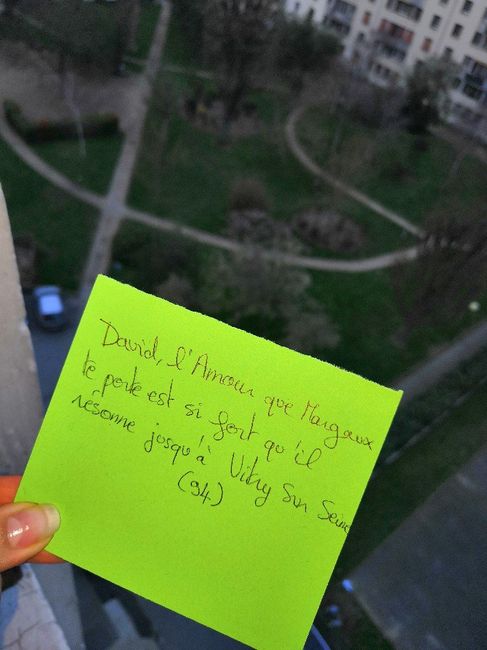 David, l'Amour que Margaux
te porte est si fort qu'il
résonne jusqu'à Vitry Sur Seine
(94)